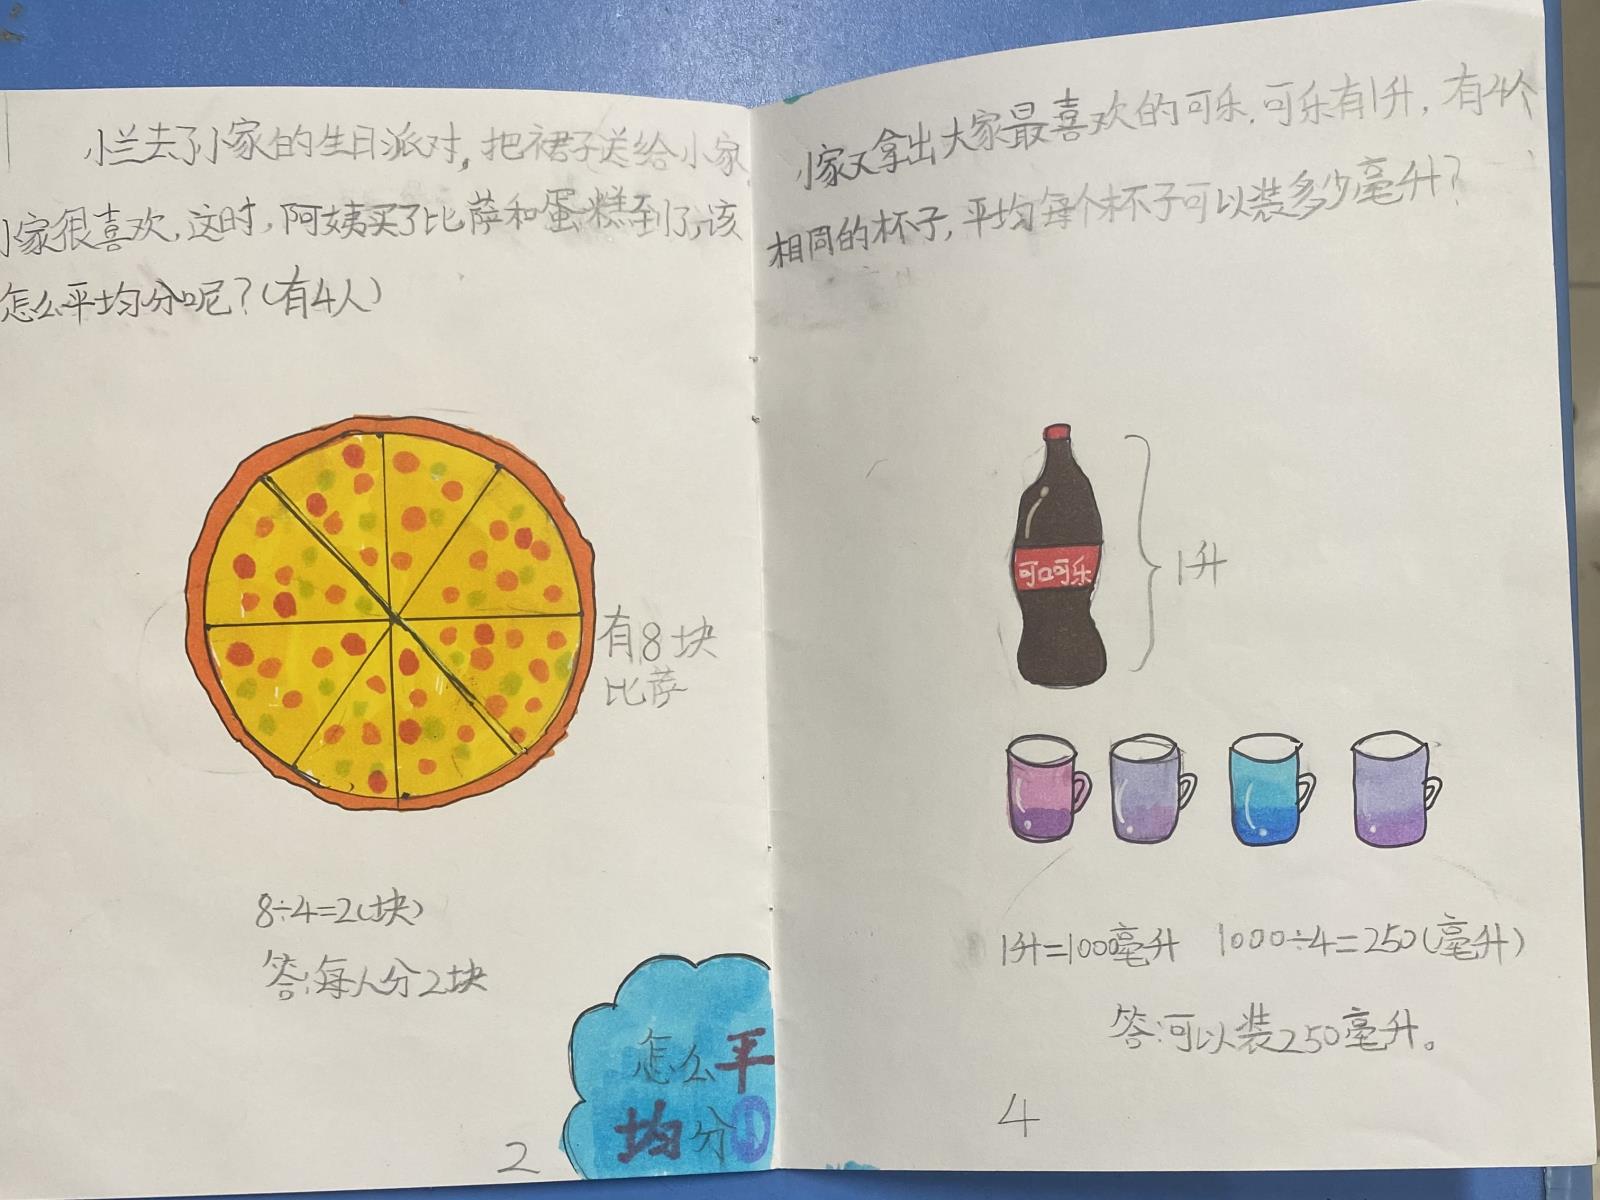 小兰去了小家的生日派对，把裙子送给小家，
小家很喜欢，这时，阿姨买了比萨和蛋糕到了，该
怎么平均分呢？（有4人）
有8块
比萨
8÷4=2（块）
答：每人分2块
怎么平
均分
2
小家又拿出大家最喜欢的可乐，可乐有1升，有4个
相同的杯子，平均每个杯子可以装多少毫升？
可口可乐
1升
1升=1000毫升 1000÷4=250（毫升）
答：可以装250毫升。
4